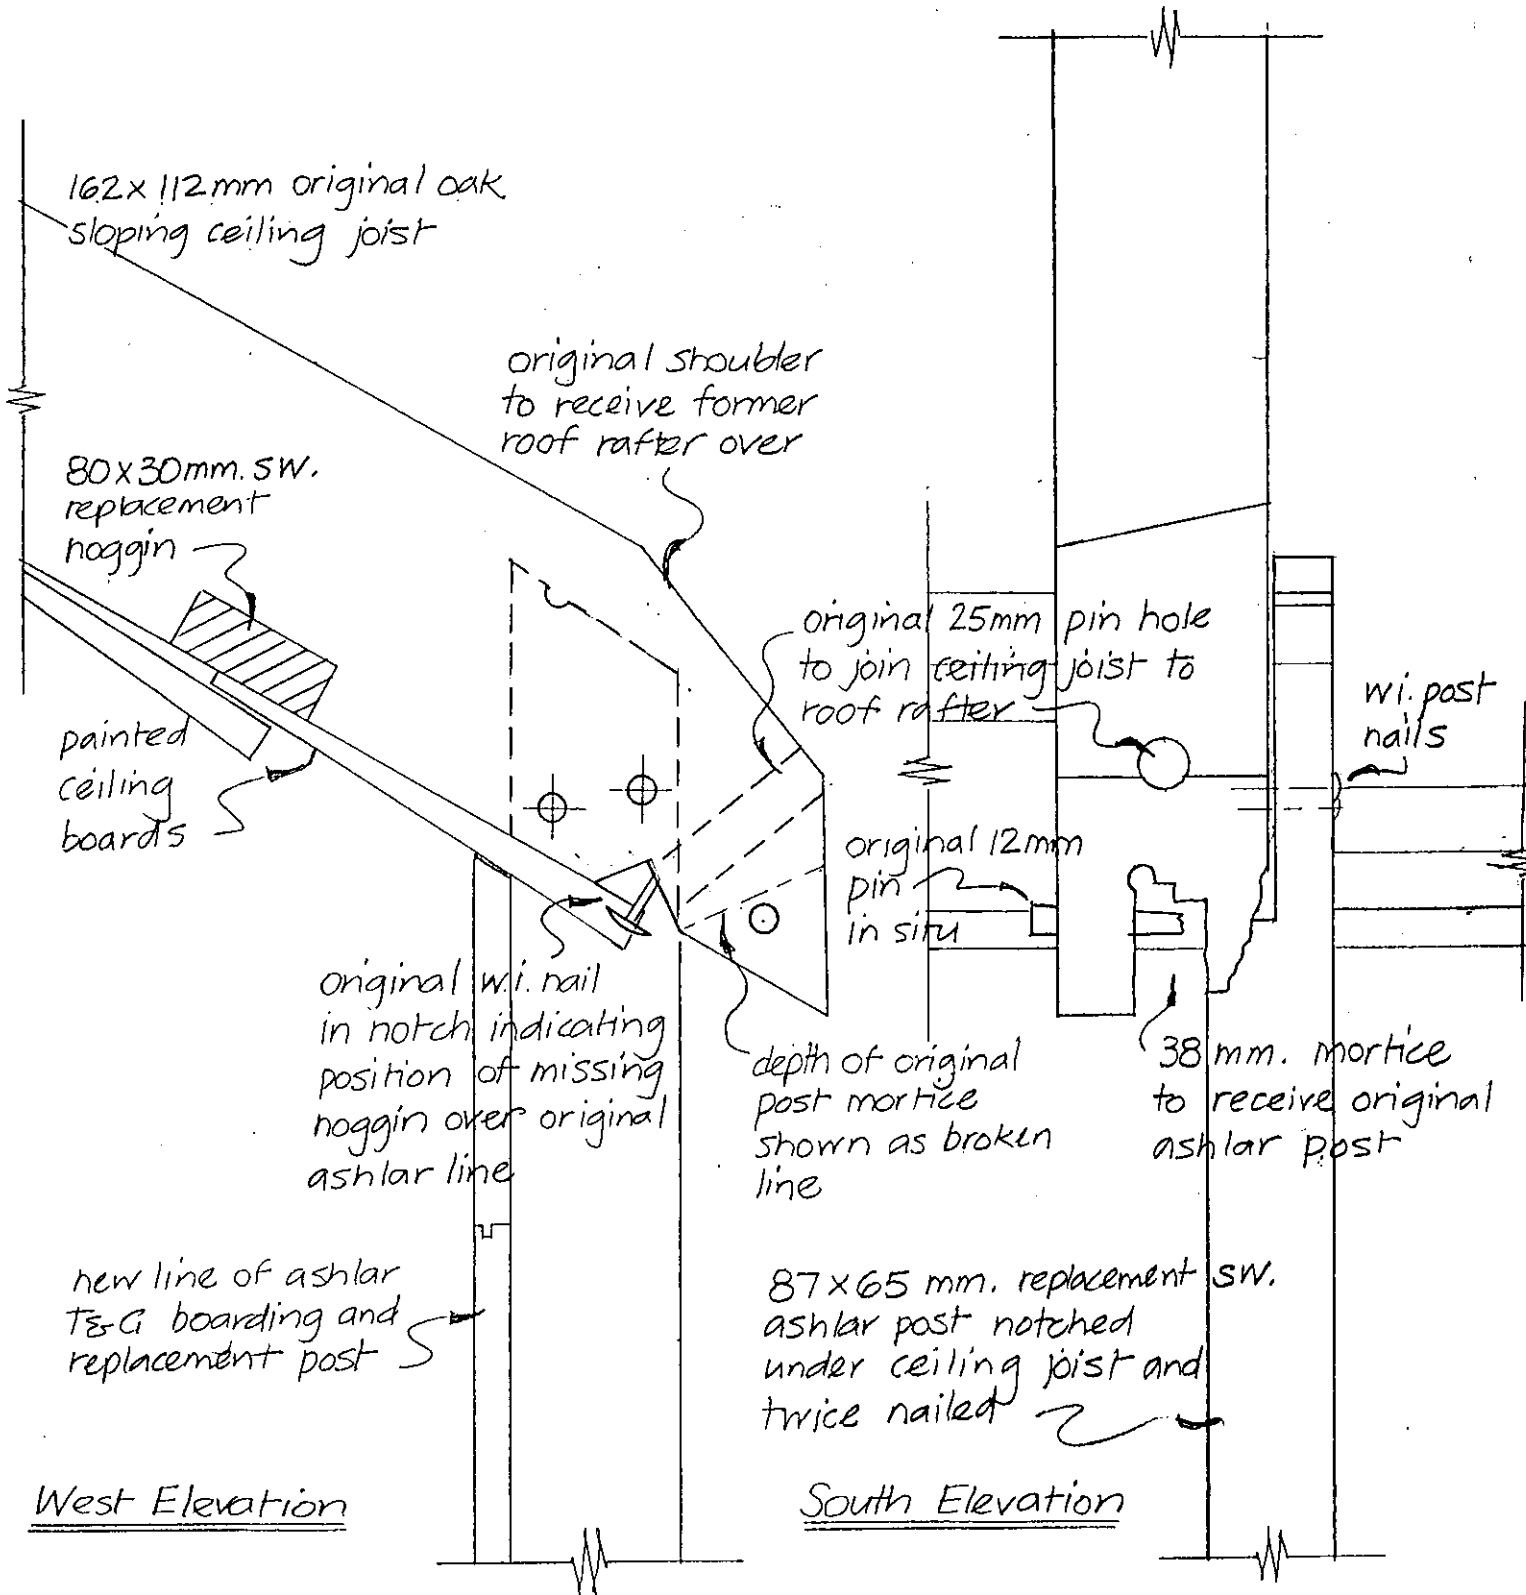 162x 112mm original oak
sloping ceiling joist
original shoubler
to receive former
roof rafter over
80x30mm. SW.
replacement
noggin
original 25mm pin hole
to join ceiling joist to
roof rafter
w.i. post
nails
painted
ceiling
boards
original 12mm
pin
in situ
original w.i. nail
in notch indicating
position of missing
noggin over original
ashlar line
depth of original
post mortice
shown as broken
line
38 mm. mortice
to receive original
ashlar post
new line of ashlar
T&G boarding and
replacement post
87x65 mm. replacement SW.
ashlar post notched
under ceiling joist and
twice nailed
West Elevation
South Elevation